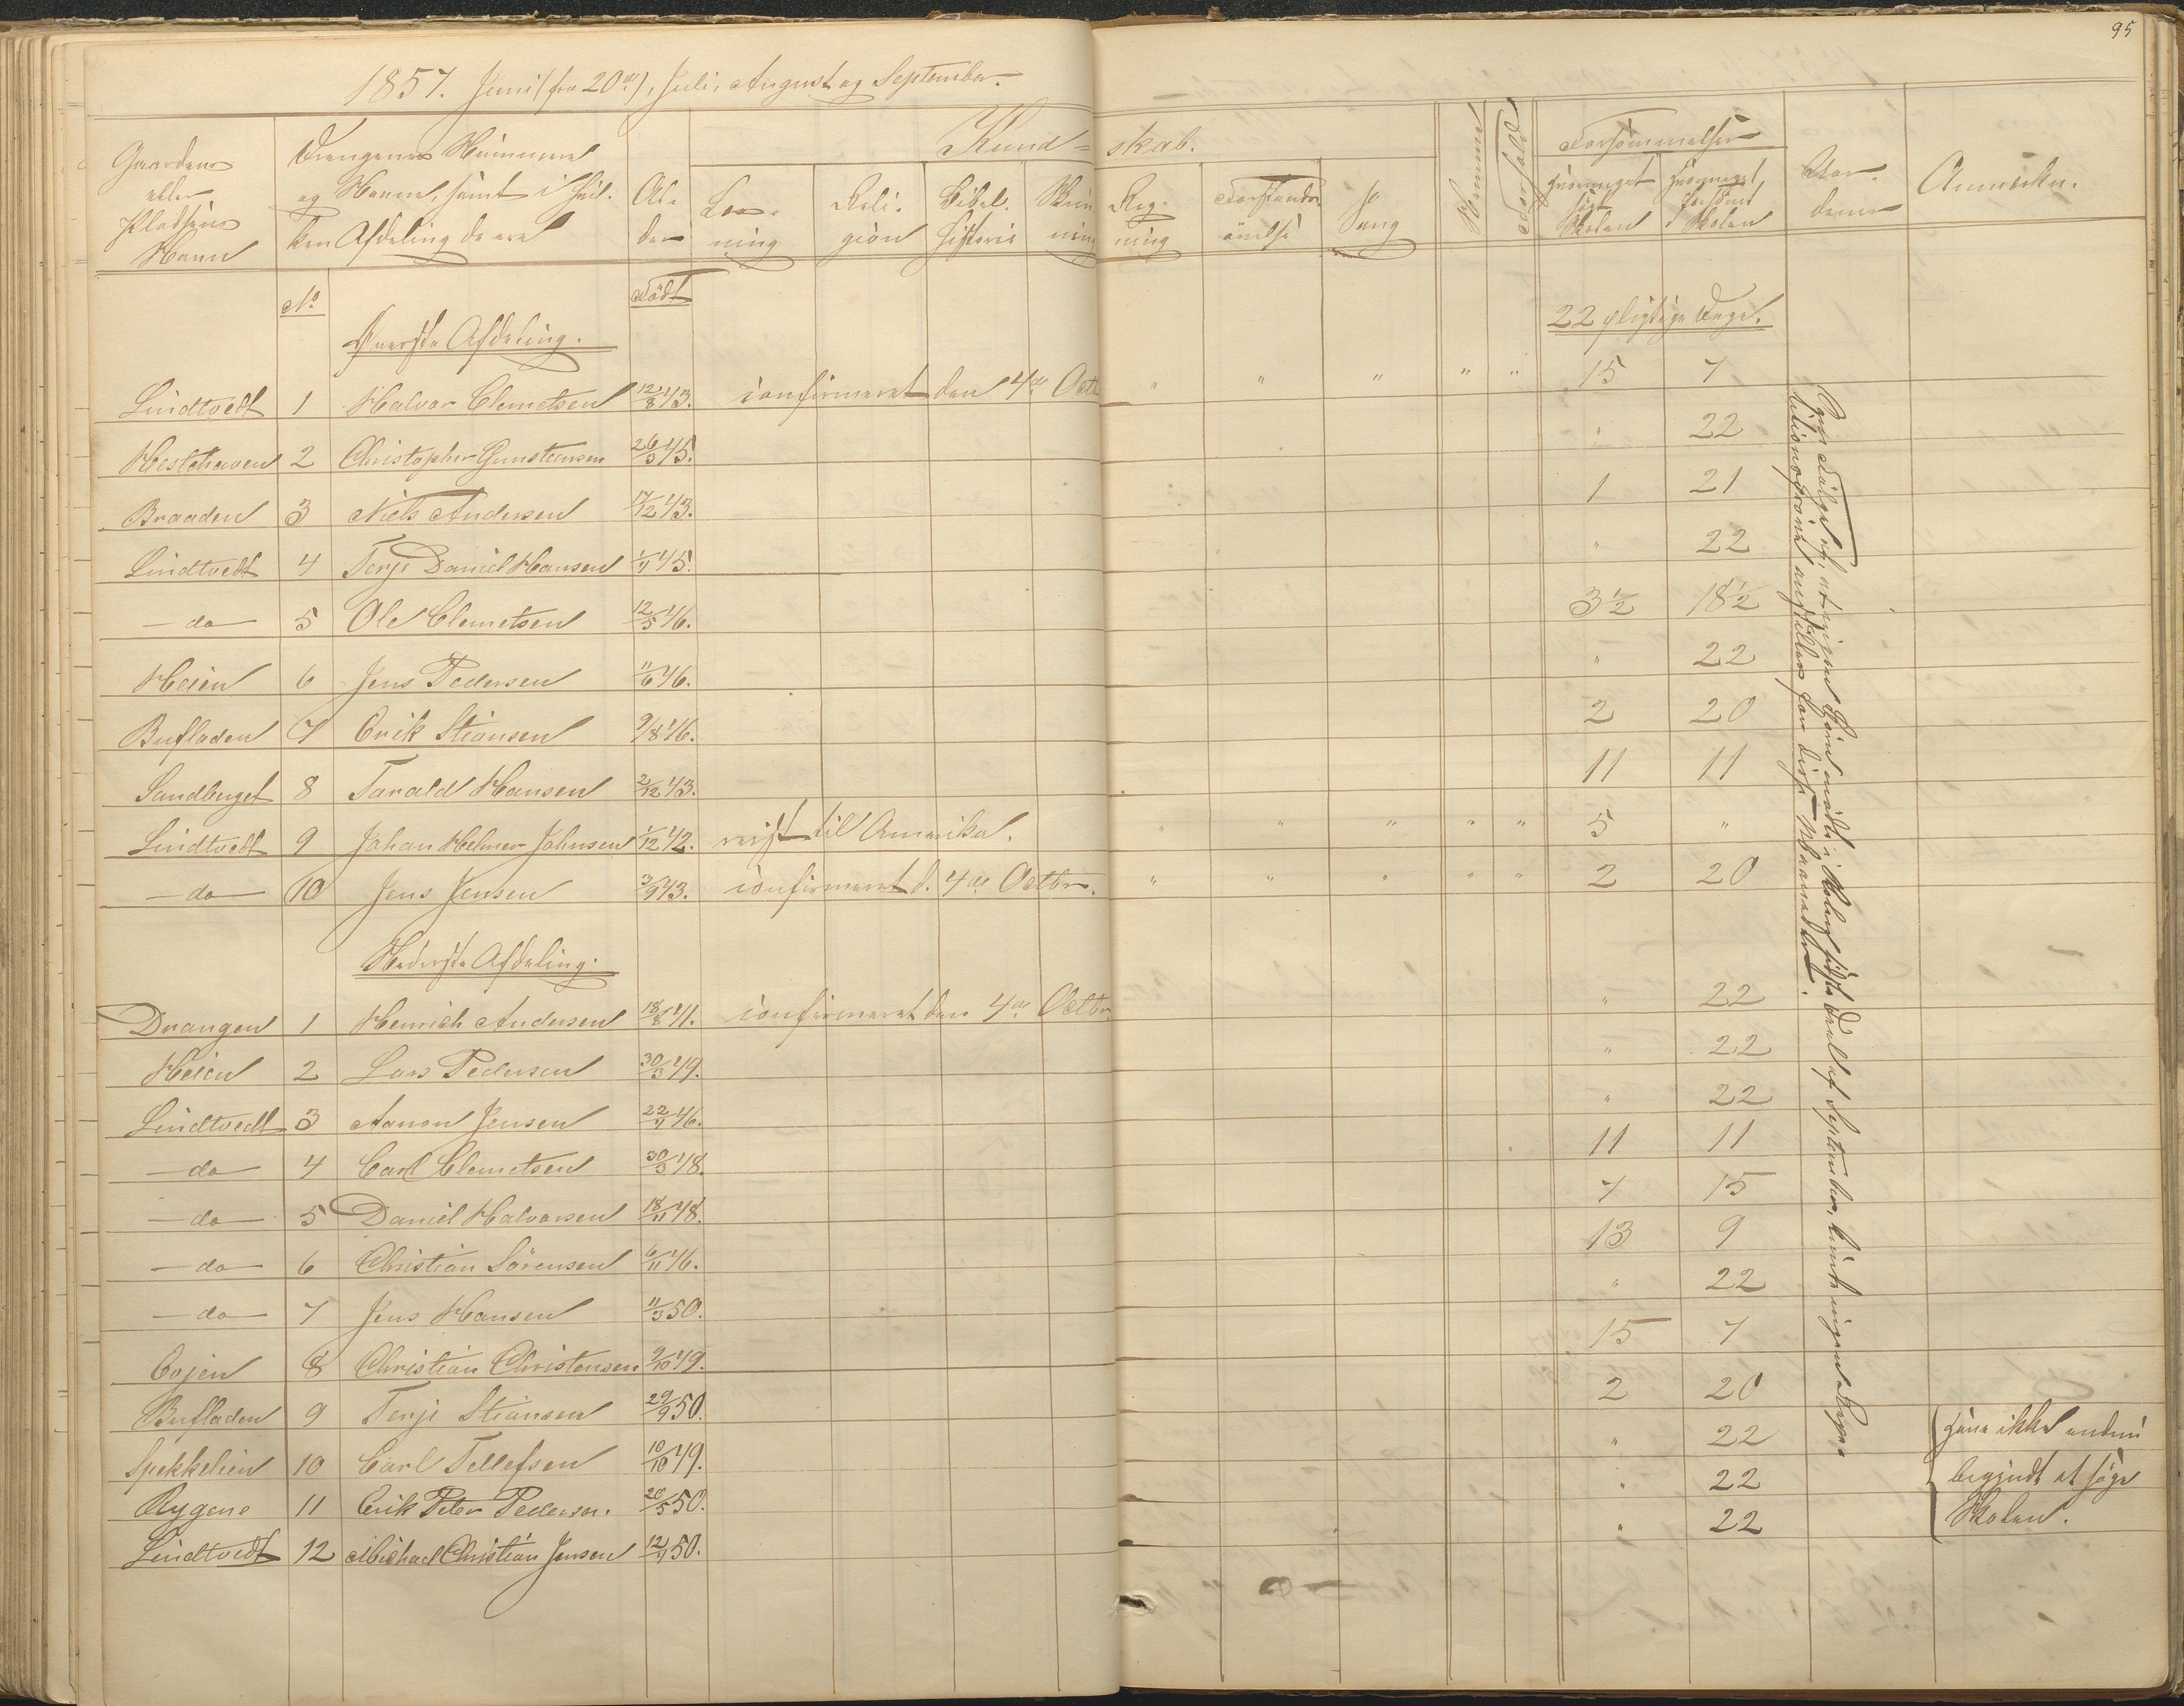 95
1857. Juni (fra 20de), Juli, August og September.
Gaardens eller Pladsens Navn
Drengenes Nummer og Navne, samt i hvilken Afdeling de ere
Alder
Kundskab.
Læsning
Religion
Bibelhistorie
Skrivning
Regning
Forstandsövelse
Sang
Nemme
Forhold
Forsömmelser
hvormeget sögt Skolen
hvormeget forsömt Skolen
Anmærkn.
No
Födt
22 pligtige Dage.
Øverste Afdeling.
Lindtvedt 1 Halvor Clemetsen 12/8 43. confirmeret den 4de Octr " " " " " 15 7
Hestehaven 2 Christopher Gunstensen 26/3 45. " 22
Braaden 3 Niels Andersen 17/12 43. 1 21
Lindtvedt 4 Terje Daniel Hansen 1/4 45. " 22
— do — 5 Ole Clemetsen 12/5 46. 3½ 18½
Heien 6 Jens Pedersen 11/6 46. " 22
Bufladen 7 Erik Stiansen 9/8 46. 2 20
Sandberget 8 Tarald Hansen 2/12 43. 11 11
Lindtvedt 9 Johan Helmer Johnsen 1/12 42. reist til Amerika. " " " " " 5 "
— do — 10 Jens Jensen 3/9 43. confirmeret d. 4de Octbr. " " " " " 2 20
Nederste Afdeling.
Drangen 1 Henrich Andersen 18/8 41. confirmeret den 4de Octbr. " 22
Heien 2 Lars Pedersen 30/3 49. " 22
Lindtvedt 3 Aanon Jensen 22/4 46. " 22
— do — 4 Carl Clemetsen 30/3 48. 11 11
— do — 5 Daniel Halvorsen 18/11 48. 7 15
— do — 6 Christian Sörensen 6/11 46. 13 9
— do — 7 Jens Hansen 11/3 50. " 22
8 Christian Christensen 9/10 49. 15 7
Bufladen 9 Terje Stiansen 29/9 50. 2 20
Spekkelien 10 Carl Tellefsen 10/10 49. " 22 have ikke endnu
Rygene 11 Erik Peter Pedersen. 20/5 50. " 22 begyndt at söge
Lindtvedt 12 Michael Christian Jensen 12/9 50. " 22 Skolen.
Som Fölge af, at ingen Börn mödte i Skolen sidste Deel af September, kunde ingen
anstilles for disse Maaneder.